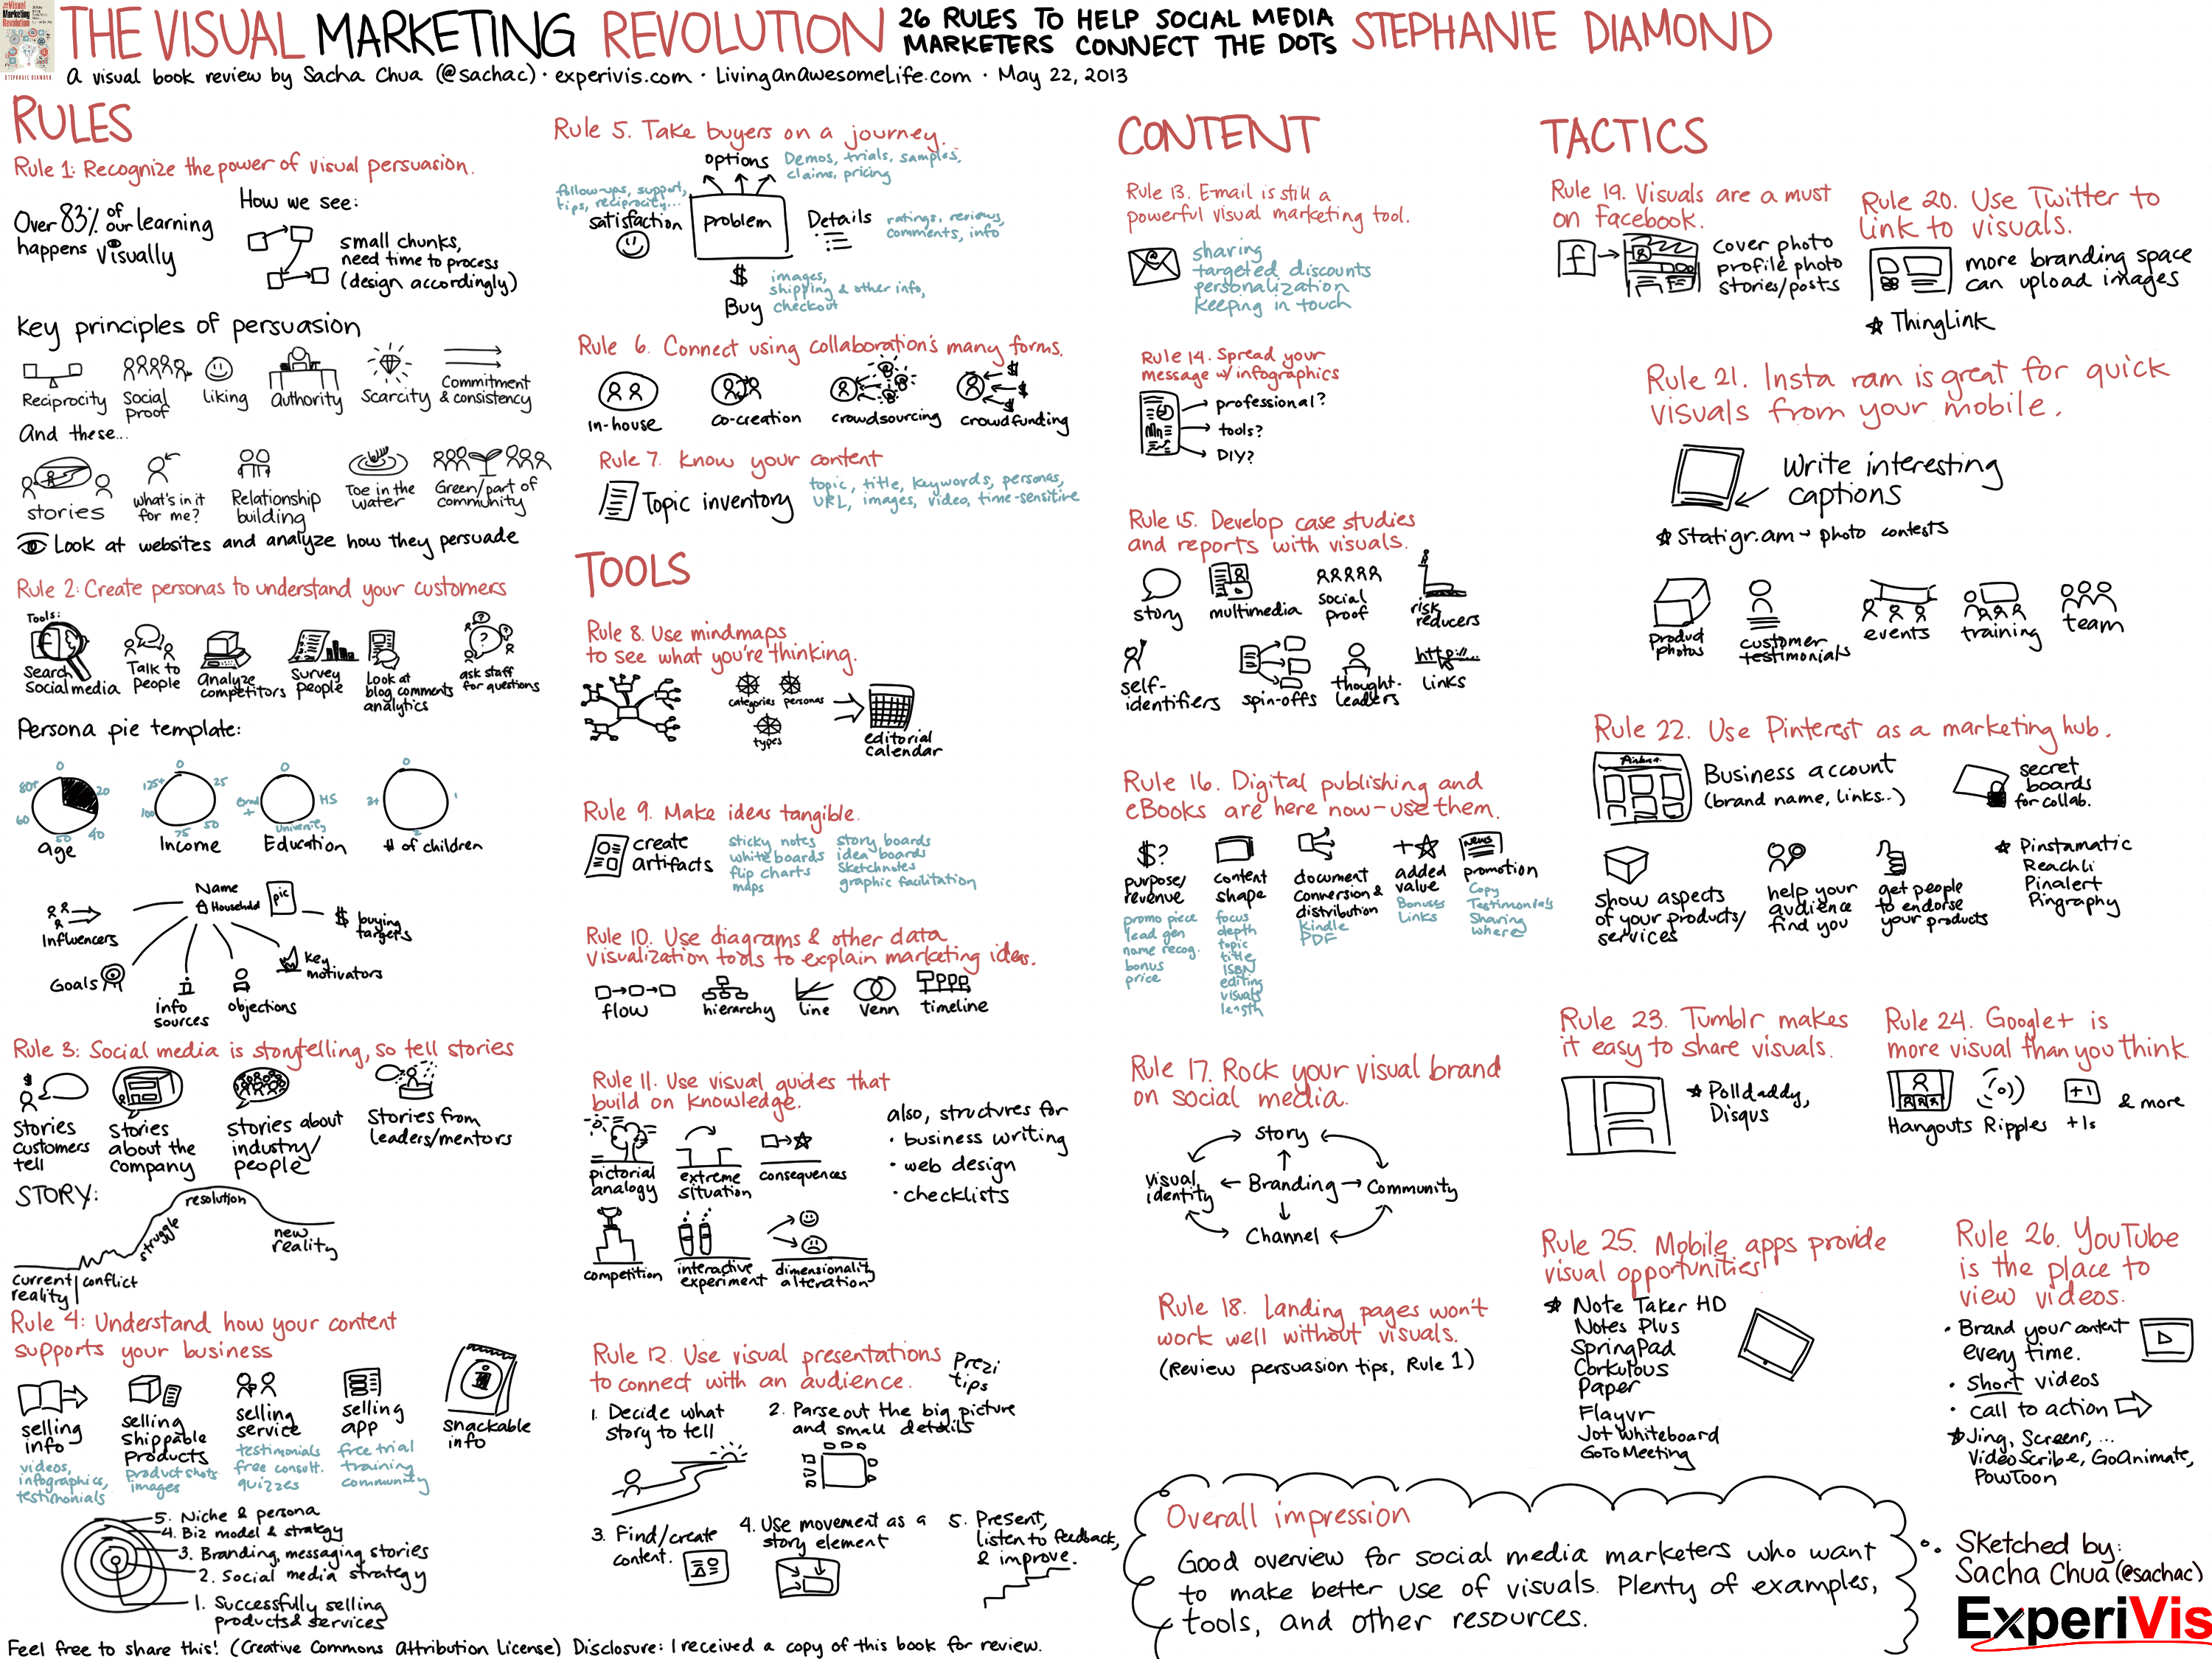 THE VISUAL MARKETING REVOLUTION
26 RULES TO HELP SOCIAL MEDIA
MARKETERS CONNECT THE DOTS
STEPHANIE DIAMOND
a visual book review by Sacha Chua (@sachac) · experivis.com · LivingAnAwesomeLife.com · May 22, 2013
RULES
Rule 1: Recognize the power of visual persuasion.
Over 83% of our learning
happens visually
How we see:
small chunks,
need time to process
(design accordingly)
Key principles of persuasion
Reciprocity
Social
proof
Liking
Authority
Scarcity
Commitment
& consistency
And these...
stories
What's in it
for me?
Relationship
building
Toe in the
water
Green/part of
community
Look at websites and analyze how they persuade
Rule 2: Create personas to understand your customers
Tools:
Search
Social media
Talk to
People
Analyze
competitors
Survey
people
Look at
blog comments
analytics
ask staff
for questions
Persona pie template:
0
20
40
50
60
80+
Age
0
25
50
75
100
125+
Income
0
HS
University
Grad
+
Education
0
1
2
3+
# of children
Name
Household
pic
Influencers
Goals
info
sources
objections
Key
motivators
$ buying
targets
Rule 3: Social media is storytelling, so tell stories
Stories
customers
tell
Stories
about the
company
Stories about
industry/
people
Stories from
leaders/mentors
STORY:
current
reality
conflict
struggle
resolution
new
reality
Rule 4: Understand how your content
supports your business
selling
info
videos,
infographics,
testimonials
selling
shippable
products
product shots
images
selling
service
testimonials
free consult.
quizzes
selling
app
free trial
training
community
snackable
info
5. Niche & persona
4. Biz model & strategy
3. Branding, messaging stories
2. Social media strategy
1. Successfully selling
products & services
Rule 5. Take buyers on a journey.
options
Demos, trials, samples,
claims, pricing
follow-ups, support,
tips, reciprocity...
satisfaction
problem
Details
ratings, reviews,
comments, info
$
Buy
images,
shipping & other info,
checkout
Rule 6. Connect using collaboration's many forms.
in-house
co-creation
crowdsourcing
crowdfunding
Rule 7. Know your content
Topic inventory
topic, title, keywords, personas,
URL, images, video, time-sensitive
TOOLS
Rule 8. Use mindmaps
to see what you're thinking.
categories
personas
types
editorial
calendar
Rule 9. Make ideas tangible.
create
artifacts
sticky notes
whiteboards
flip charts
maps
story boards
idea boards
Sketchnotes
graphic facilitation
Rule 10. Use diagrams & other data
visualization tools to explain marketing ideas.
flow
hierarchy
line
Venn
timeline
Rule 11. Use visual guides that
build on knowledge.
pictorial
analogy
extreme
situation
consequences
competition
interactive
experiment
dimensionality
alteration
also, structures for
· business writing
· web design
· checklists
Rule 12. Use visual presentations
to connect with an audience.
Prezi
tips
1. Decide what
story to tell
2. Parse out the big picture
and small details
3. Find/create
content.
4. Use movement as a
story element
5. Present,
listen to feedback,
& improve.
CONTENT
Rule 13. E-mail is still a
powerful visual marketing tool.
sharing
targeted discounts
personalization
keeping in touch
Rule 14. Spread your
message w/ infographics
professional?
tools?
DIY?
Rule 15. Develop case studies
and reports with visuals.
story
multimedia
social
proof
risk
reducers
self-
identifiers
spin-offs
thought-
leaders
http://...
links
Rule 16. Digital publishing and
eBooks are here now - use them.
$?
purpose/
revenue
promo piece
lead gen
name recog.
bonus
price
content
shape
focus
depth
topic
title
ISBN
editing
visuals
length
document
conversion &
distribution
Kindle
PDF
added
value
Bonuses
Links
NEWS
promotion
Copy
Testimonials
Sharing
where
Rule 17. Rock your visual brand
on social media.
Story
visual
identity
Branding
Community
Channel
Rule 18. Landing pages won't
work well without visuals.
(Review persuasion tips, Rule 1)
TACTICS
Rule 19. Visuals are a must
on Facebook.
f
cover photo
profile photo
stories/posts
Rule 20. Use Twitter to
link to visuals.
more branding space
can upload images
ThingLink
Rule 21. Insta ram is great for quick
visuals from your mobile.
Write interesting
captions
Statigr.am - photo contests
product
photos
customer
testimonials
events
training
team
Rule 22. Use Pinterest as a marketing hub.
Business account
(brand name, links..)
secret
boards
for collab.
show aspects
of your products/
services
help your
audience
find you
get people
to endorse
your products
Pinstamatic
Reachli
Pinalert
Pingraphy
Rule 23. Tumblr makes
it easy to share visuals.
Polldaddy,
Disqus
Rule 24. Google+ is
more visual than you think
Hangouts
Ripples
+1
+1s
& more
Rule 25. Mobile apps provide
visual opportunities
Note Taker HD
Notes Plus
SpringPad
Corkulous
Paper
Flayvr
Jot Whiteboard
GoToMeeting
Rule 26. YouTube
is the place to
view videos.
· Brand your content
every time.
· Short videos
· Call to action
Jing, Screenr, ...
VideoScribe, GoAnimate,
PowToon
Overall impression
Good overview for social media marketers who want
to make better use of visuals. Plenty of examples,
tools, and other resources.
Sketched by:
Sacha Chua (@sachac)
ExperiVis
Feel free to share this! (Creative Commons Attribution License) Disclosure: I received a copy of this book for review.